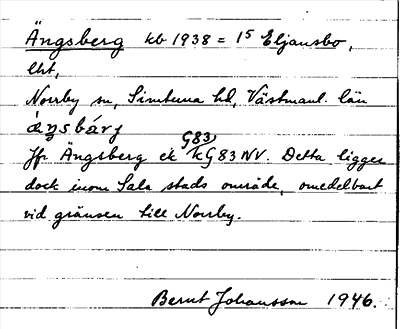 Ängsberg kb 1938 = 1⁵ Eljansbo,
lht,
Norrby sn, Simtuna hd, Västmanl. län
Jfr Ängsberg ek G83 kG83NV. Detta ligger
dock inom Sala stads område, omedelbart
vid gränsen till Norrby.
Bernt Johansson 1946.